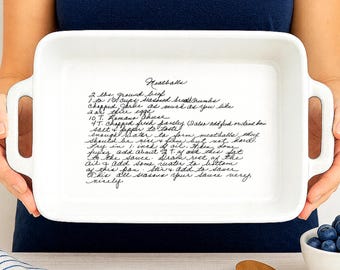 Meatballs
2 lbs ground beef
1 to 1 1/2 cups seasoned breadcrumbs
chopped garlic as much as you like
2 or three eggs
10 T. Romano cheese
4 T. chopped fresh parsley
salt & pepper to taste
enough water to form meatballs, they
should be nice & firm but not hard.
Fry in 1 inch of oil. Then done
frying add about 1/4 of this fat
to the sauce. Drain rest of the
oil & add some water to bottom
of this pan. Stir & add to sauce
this all seasons your sauce very,
nicely.